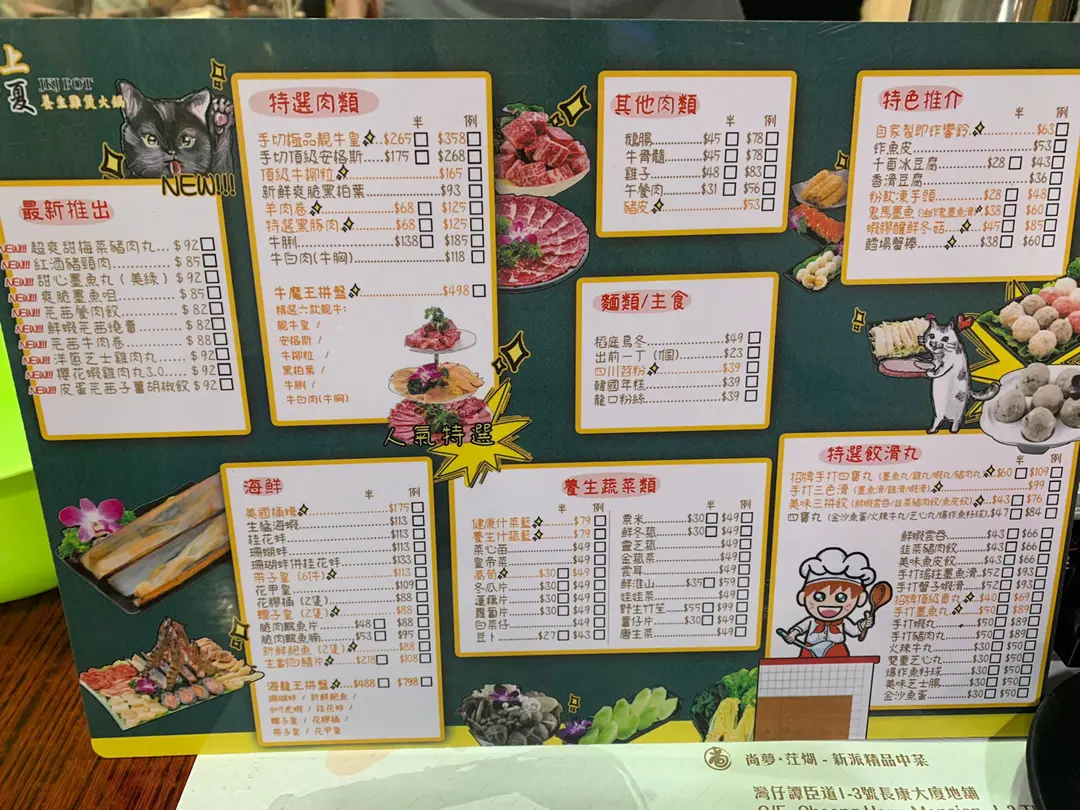 上
夏
JKJ POT
養生雞煲火鍋
NEW!!!
最新推出
NEW!!! 超爽甜梅菜豬肉丸...$92
NEW!!! 紅酒豬頸肉...$85
NEW!!! 甜心墨魚丸(美綠)$92
NEW!!! 爽脆墨魚咀...$85
NEW!!! 芫茜餐肉餃...$82
NEW!!! 鮮蝦芫茜燒賣...$82
NEW!!! 芫茜牛肉卷...$88
NEW!!! 洋蔥芝士雞肉丸...$92
NEW!!! 櫻花蝦雞肉丸3.0...$92
NEW!!! 皮蛋芫茜子薑胡椒餃$92
特選肉類
半 例
手切極品靚牛皇...$265 $358
手切頂級安格斯...$175 $268
頂級牛柳粒...$165
新鮮爽脆黑柏葉...$93
羊肉卷...$68 $125
特選黑豚肉...$68 $125
牛脷...$138 $185
牛白肉(牛胸)...$118
牛魔王拼盤...$498
精選六款靚牛:
靚牛皇 /
安格斯 /
牛柳粒 /
黑柏葉 /
牛脷 /
牛白肉(牛胸)
人氣特選
其他肉類
半 例
鵝腸...$45 $78
牛骨髓...$45 $78
雞子...$48 $83
午餐肉...$31 $56
豬皮...$53
特色推介
半 例
自家製即炸響鈴...$63
炸魚皮...$53
千頁冰豆腐...$28 $43
香滑豆腐...$36
粉軟凍芋頭...$28 $48
鬼馬墨魚(油炸鬼墨魚滑)$38 $60
蝦膠釀鮮冬菇...$45 $85
賭場蟹棒...$38 $60
麵類/主食
稻庭烏冬...$49
出前一丁(1個)...$23
四川苕粉...$39
韓國年糕...$39
龍口粉絲...$39
海鮮
半 例
美國桶蠔...$179
生猛海蝦...$113
桂花蚌...$113
珊瑚蚌...$113
珊瑚蚌拼桂花蚌...$133
帶子皇(6件)...$113
花甲皇...$109
花膠桶(2隻)...$88
蟶子皇(2隻)...$88
脆肉鯇魚片...$48 $88
脆肉鯇魚腩...$53 $95
新鮮鮑魚(2隻)...$88
生劏白鱔片...$218 $108
海龍王拼盤...$488 $798
珊瑚蚌 / 新鮮鮑魚 /
沙虎蝦 / 桂花蚌 /
蟶子皇 / 花膠桶 /
帶子皇 / 花甲皇
養生蔬菜類
半 例 半 例
健康什菜籃...$79
養生什菇籃...$79
菜心苗...$49
皇帝菜...$49
萵筍...$30 $49
冬瓜片...$30 $49
蓮藕片...$30 $49
蘿蔔片...$30 $49
白菜仔...$49
豆卜...$27 $43
粟米...$30 $49
鮮冬菇...$30 $49
靈芝菇...$49
金菇菜...$49
雲耳...$49
鮮淮山...$35 $59
娃娃菜...$49
野生竹笙...$55 $99
薯仔片...$30 $49
唐生菜...$49
特選餃滑丸
半 例
招牌手打四寶丸(墨魚丸/雞丸/蝦丸/豬肉丸)$60 $109
手打三色滑(墨魚滑/雞滑/蝦滑)...$99
美味三拼餃(鮮蝦雲吞/韭菜豬肉餃/魚皮餃)...$43 $76
四寶丸(金沙魚蛋/火辣牛丸/芝心丸/爆炸魚籽球).$47 $84
鮮蝦雲吞...$43 $66
韭菜豬肉餃...$43 $66
美味魚皮餃...$43 $66
手打瑤柱墨魚滑..$52 $93
手打蟹子蝦滑...$52 $93
招牌頂級貢丸...$40 $69
手打墨魚丸...$50 $89
手打蝦丸...$50 $89
手打豬肉丸...$50 $89
火辣牛丸...$30 $50
雙重芝心丸...$30 $50
爆炸魚籽球...$30 $50
美味芝士腸...$30 $50
金沙魚蛋...$30 $50
尚夢·茳煳 - 新派精品中菜
灣仔譚臣道1-3號長康大廈地舖